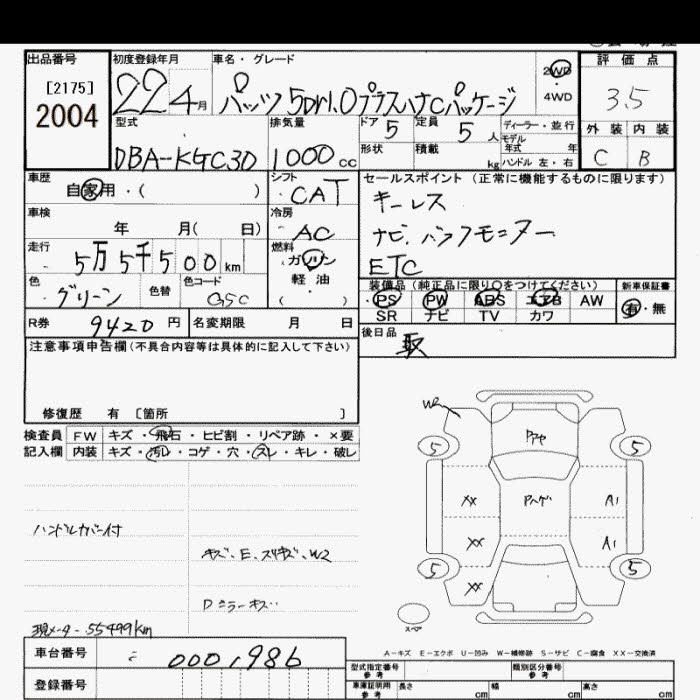 出品番号 初度登録年月 車名・グレード 評価点
[2175] 22 4月 パッソ 5Dr1.0プラスハナCパッケージ 2WD・4WD 3.5
2004
型式 排気量 ドア 5 定員 5人 ディーラー・並行 外装 内装
DBA-KGC30 1000cc 形状 積載 kg モデル年式 年 ハンドル 左・右 C B
車歴 シフト セールスポイント(正常に機能するものに限ります)
自家用・( ) CAT キーレス
車検 冷房 ナビ.バックモニター
年 月( 日) AC ETC
走行 燃料 装備品(純正品に限り○をつけてください) 新車保証書
5万5千500km ガソリン PS PW ABS エアB AW 有・無
色 色替 色コード 軽油 SR ナビ TV カワ
グリーン G5C ( )
R券 9420円 名変期限 月 日 後日品
注意事項申告欄(不具合内容等は具体的に記入して下さい) 取
修復歴 有 [箇所 ]
検査員 FW キズ・飛石・ヒビ割・リペア跡・×要
記入欄 内装 キズ・汚レ・コゲ・穴・スレ・キレ・破レ
W2
5 5
XX A1
XX A1
5 5
XX
スペア
ハンドルカバー付
キズ.E.スリキズ.W2
Dミラーキズ
現メーター55499km
A-キズ E-エクボ U-凹み W-補修跡 S-サビ C-腐食 XX-交換済
車台番号 0001986 型式指定番号 参考 類別区分番号 参考
登録番号 車庫証明用 参考 長さ cm 幅 cm 高さ cm